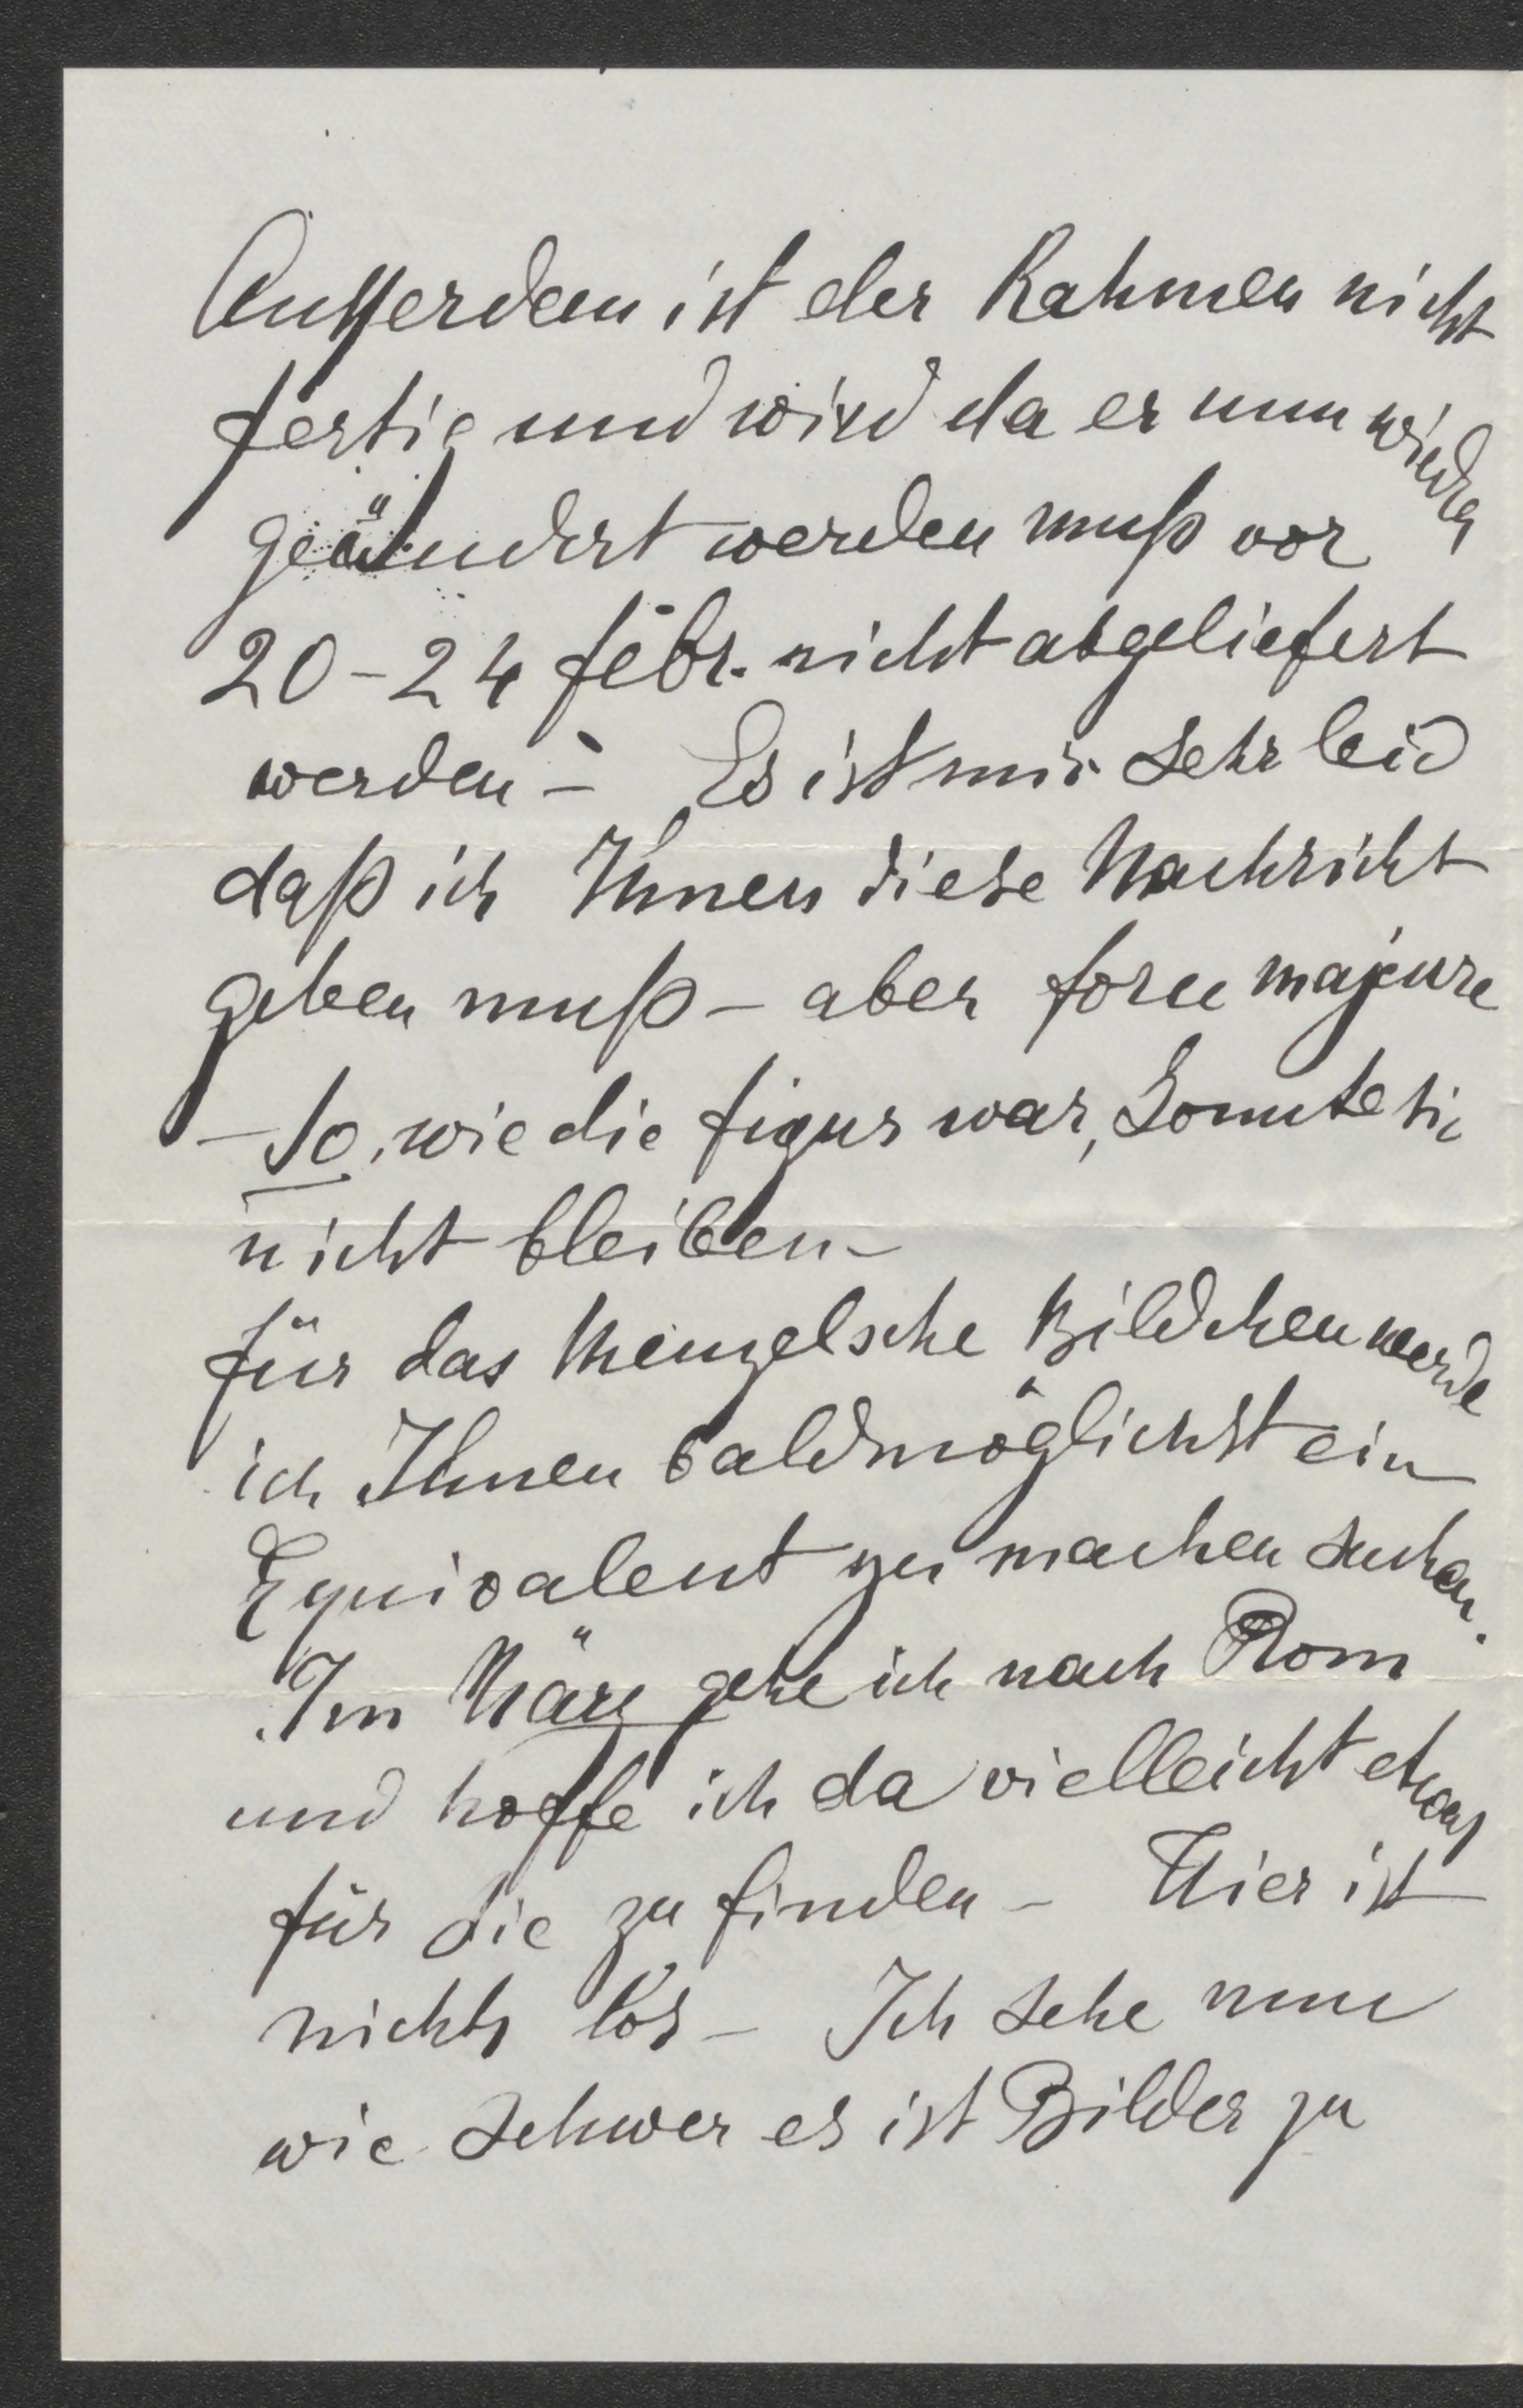 Ausserdem ist der Rahmen nicht
fertig und wird da er nun wieder
geändert werden muß vor
20-24 febr. nicht abgeliefert
werden - Es ist mir sehr leid
daß ich Ihnen diese Nachricht
geben muß - aber force majeure
- So, wie die figur war, konnte sie
nicht bleiben -
für das Menzelsche Bildchen werde
ich Ihnen baldmöglichst ein
Equivalent zu machen suchen.
Im März gehe ich nach Rom
und hoffe ich da vielleicht etwas
für Sie zu finden - Hier ist
nichts los - Ich sehe nun
wie schwer es ist Bilder zu